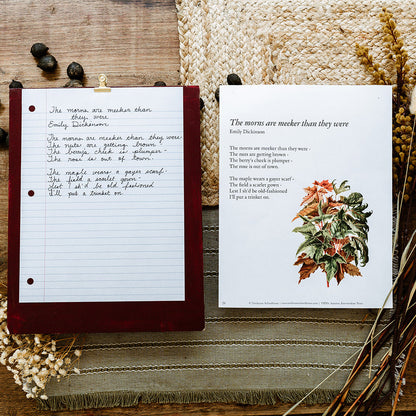 The morns are meeker than
they were
Emily Dickinson
The morns are meeker than they were
The nuts are getting brown
The berry's cheek is plumper
The rose is out of town.
The maple wears a gayer scarf
The field a scarlet gown
Lest I sh'd be old fashioned
I'll put a trinket on.
The morns are meeker than they were
Emily Dickinson
The morns are meeker than they were -
The nuts are getting brown -
The berry's cheek is plumper -
The rose is out of town.
The maple wears a gayer scarf -
The field a scarlet gown -
Lest I sh'd be old-fashioned
I'll put a trinket on.